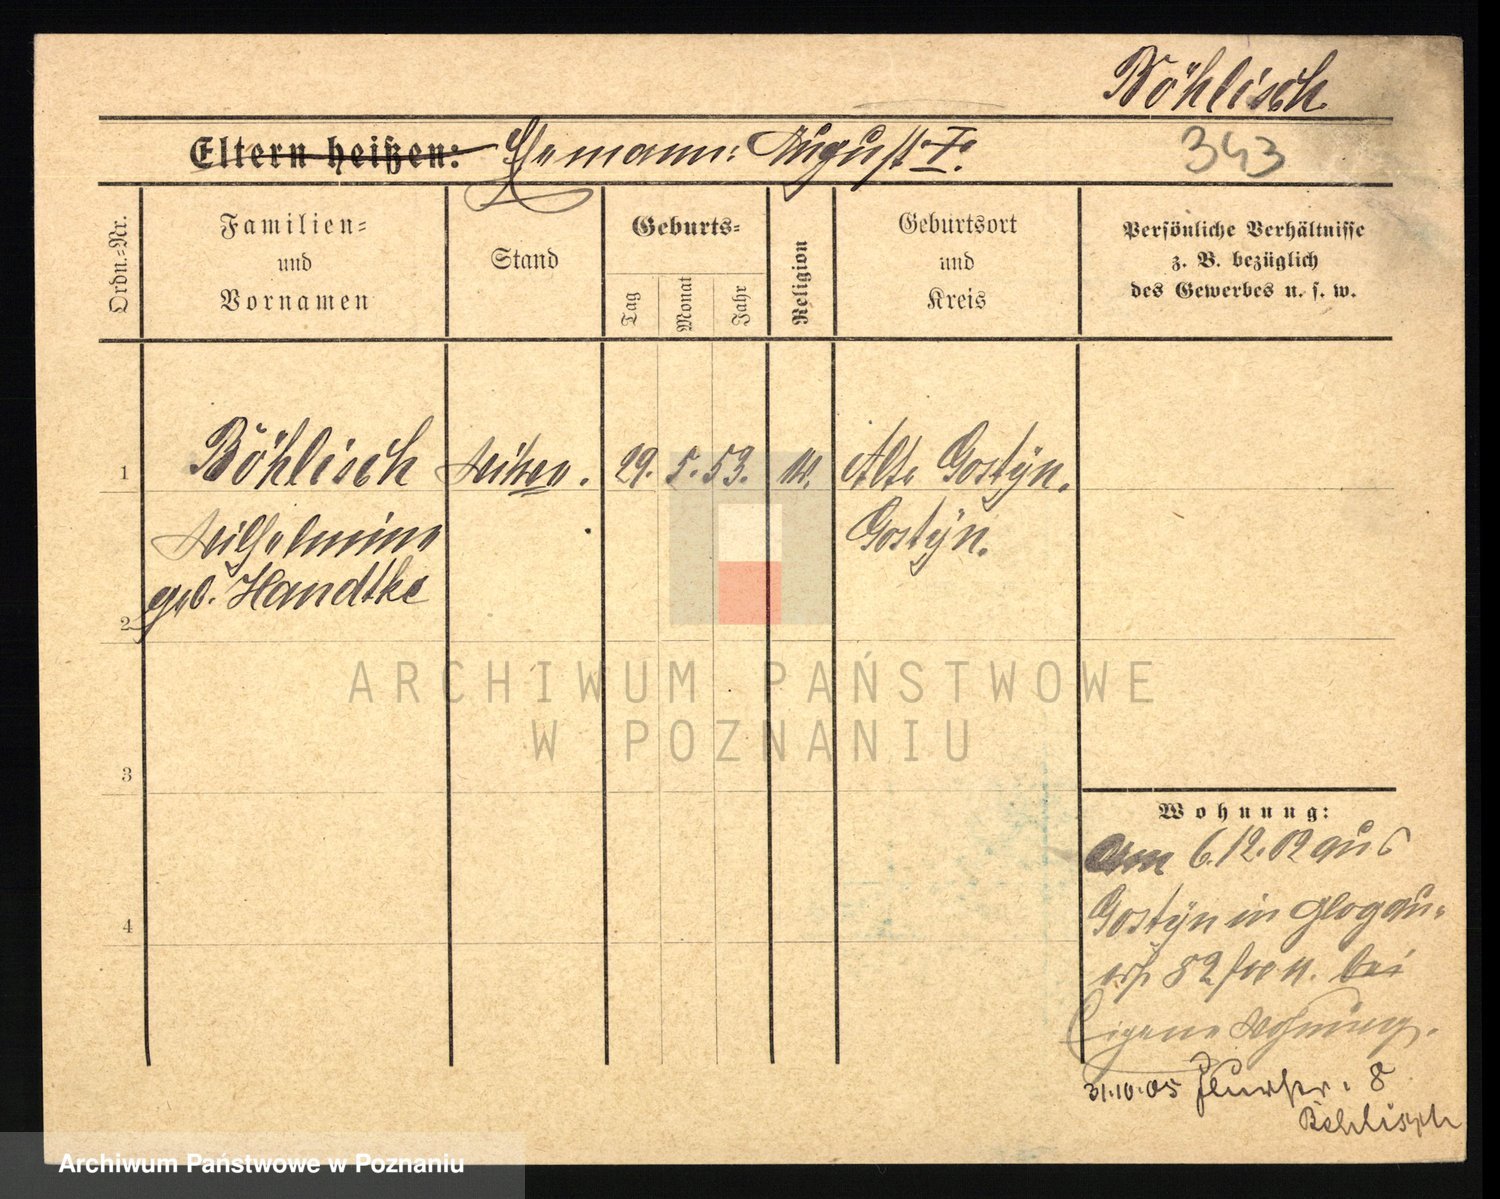 Böhlisch
343
Eltern heißen: Ehemann: August †.
Ordn.=Nr.
Familien=
und
Vornamen
Stand
Geburts=
Tag
Monat
Jahr
Religion
Geburtsort
und
Kreis
Persönliche Verhältnisse
z. B. bezüglich
des Gewerbes u. s. w.
1 Böhlisch Witwe. 29. 5. 53. Alt Gostyn.
Wilhelmine Gostyn.
geb. Handtke
2
ARCHIWUM PAŃSTWOWE
W POZNANIU
3
Wohnung:
Am 6.12.02 aus
4 Gostyn in Glogau-
82 bei
Eigene Wohnung.
31.10.05 Flurstr. 8
Böhlisch
Archiwum Państwowe w Poznaniu